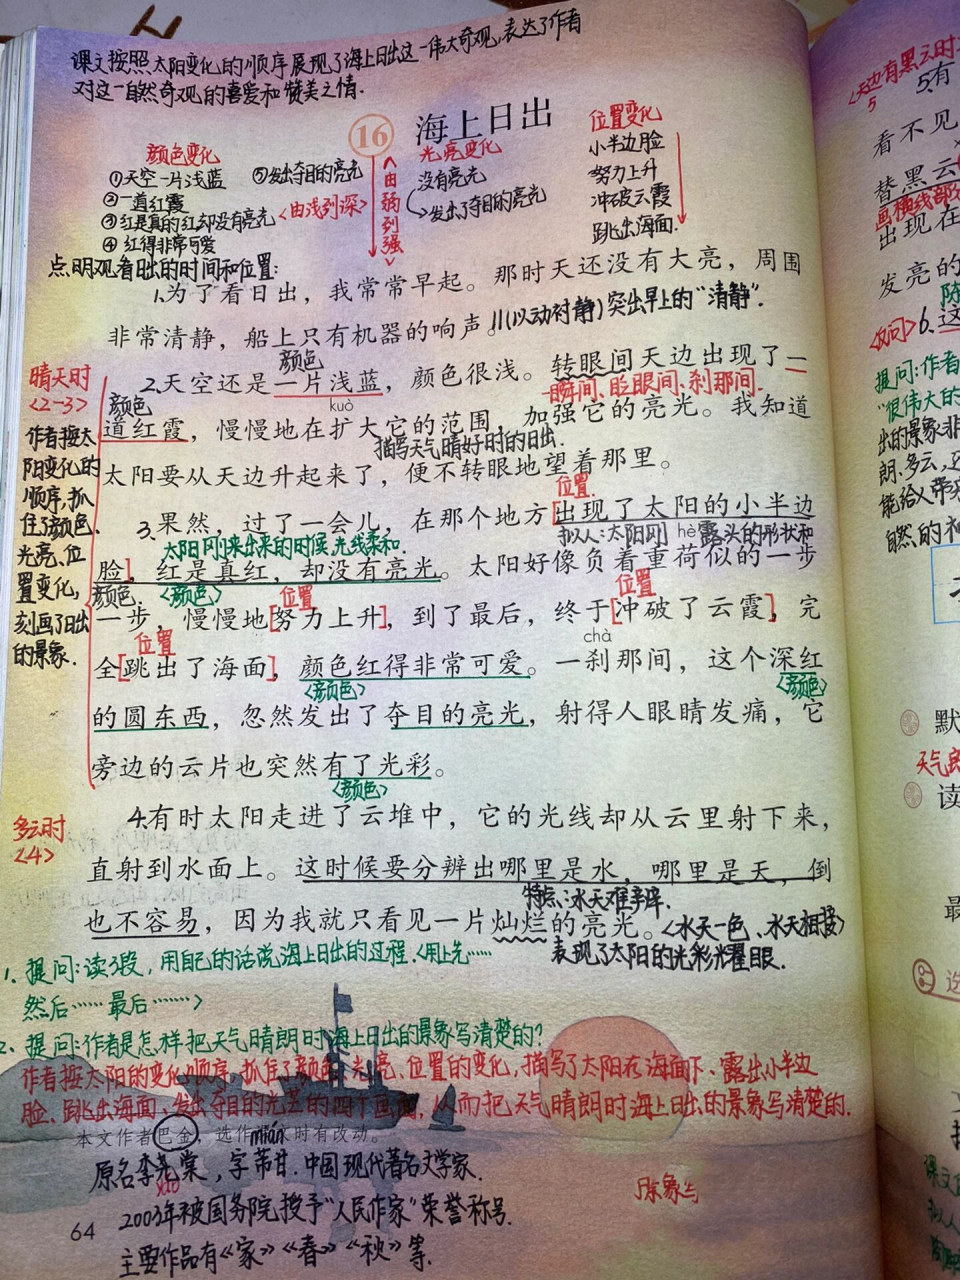 课文按照太阳变化的顺序展现了海上日出这一伟大奇观,表达了作者
对这一自然奇观的喜爱和赞美之情.
16 海上日出
颜色变化
①天空一片浅蓝 ⑤发出夺目的亮光
②一道红霞
③红是真的红却没有亮光 <由浅到深>
④红得非常可爱
<由弱到强>
光亮变化
没有亮光
发出了夺目的亮光
位置变化
小半边脸
努力上升
冲破云霞
跳出海面.
点明观看日出的时间和位置:
1.为了看日出，我常常早起。那时天还没有大亮，周围
非常清静，船上只有机器的响声。(以动衬静)突出早上的“清静”.
颜色
2.天空还是一片浅蓝，颜色很浅。转眼间天边出现了一
瞬间、眨眼间、刹那间.
颜色
kuò
道红霞，慢慢地在扩大它的范围，加强它的亮光。我知道
描写天气晴好时的日出.
太阳要从天边升起来了，便不转眼地望着那里。
位置
3.果然，过了一会儿，在那个地方[出现了太阳的小半边
太阳刚出来的时候,光线柔和. 拟人:太阳刚露头的形状和
hè
脸]，红是真红，却没有亮光。太阳好像负着重荷似的一步
颜色 <颜色> 位置 位置
一步，慢慢地[努力上升]，到了最后，终于[冲破了云霞]，完
位置 chà
全[跳出了海面]，颜色红得非常可爱。一刹那间，这个深红
<颜色> <颜色>
的圆东西，忽然发出了夺目的亮光，射得人眼睛发痛，它
旁边的云片也突然有了光彩。
<颜色>
晴天时
<2-3>
作者按太
阳变化的
顺序,抓
住了颜色.
光亮、位
置变化,
刻画了日出
的景象.
多云时
<4>
4.有时太阳走进了云堆中，它的光线却从云里射下来，
直射到水面上。这时候要分辨出哪里是水，哪里是天，倒
特点:水天难辨.
也不容易，因为我就只看见一片灿烂的亮光。<水天一色、水天相接>
表现了太阳的光彩光耀眼.
1. 提问:读3段,用自己的话说海上日出的过程.<用上先……
然后…… 最后……>
2、提问:作者是怎样把天气晴朗时海上日出的景象写清楚的?
作者按太阳的变化顺序,抓住了颜色、光亮、位置的变化,描写了太阳在海面下、露出小半边
脸、跳出海面、发出夺目的光芒的四个画面,从而把天气晴朗时海上日出的景象写清楚的.
本文作者巴金，选作课文时有改动。
原名李尧棠,字芾甘.中国现代著名文学家.
2003年被国务院授予“人民作家”荣誉称号.
64
主要作品有《家》《春》《秋》等.
<天边有黑云时
5
5.有
看不见
替黑云
画横线部
出现在
发亮的
<反问>6.这
提问:作者
“很伟大的
出的景象非
朗、多云,还
自然的神
默
读
最
课文
拟人